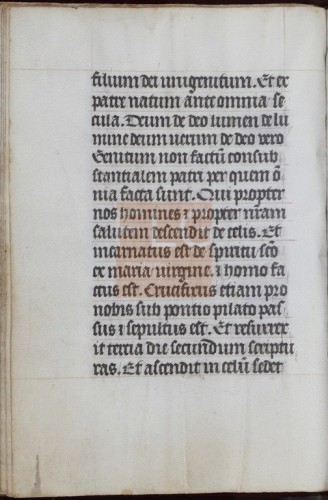 filium dei unigenitum. Et ex
patre natum ante omnia se
cula. Deum de deo lumen de lu
mine deum uerum de deo vero
Genitum non factũ consub
stantialem patri per quem õ
nia facta sunt. Qui propter
nos homines ⁊ propter nr̃am
salutem descendit de celis. Et
incarnatus est de spiritu sc̃o
ex maria uirgine. ⁊ homo fa
ctus est. Crucifixus etiam pro
nobis sub pontio pilato pas
sus ⁊ sepultus est. Et resurrex
it tercia die secundum scriptu
ras. Et ascendit in celũ sedet